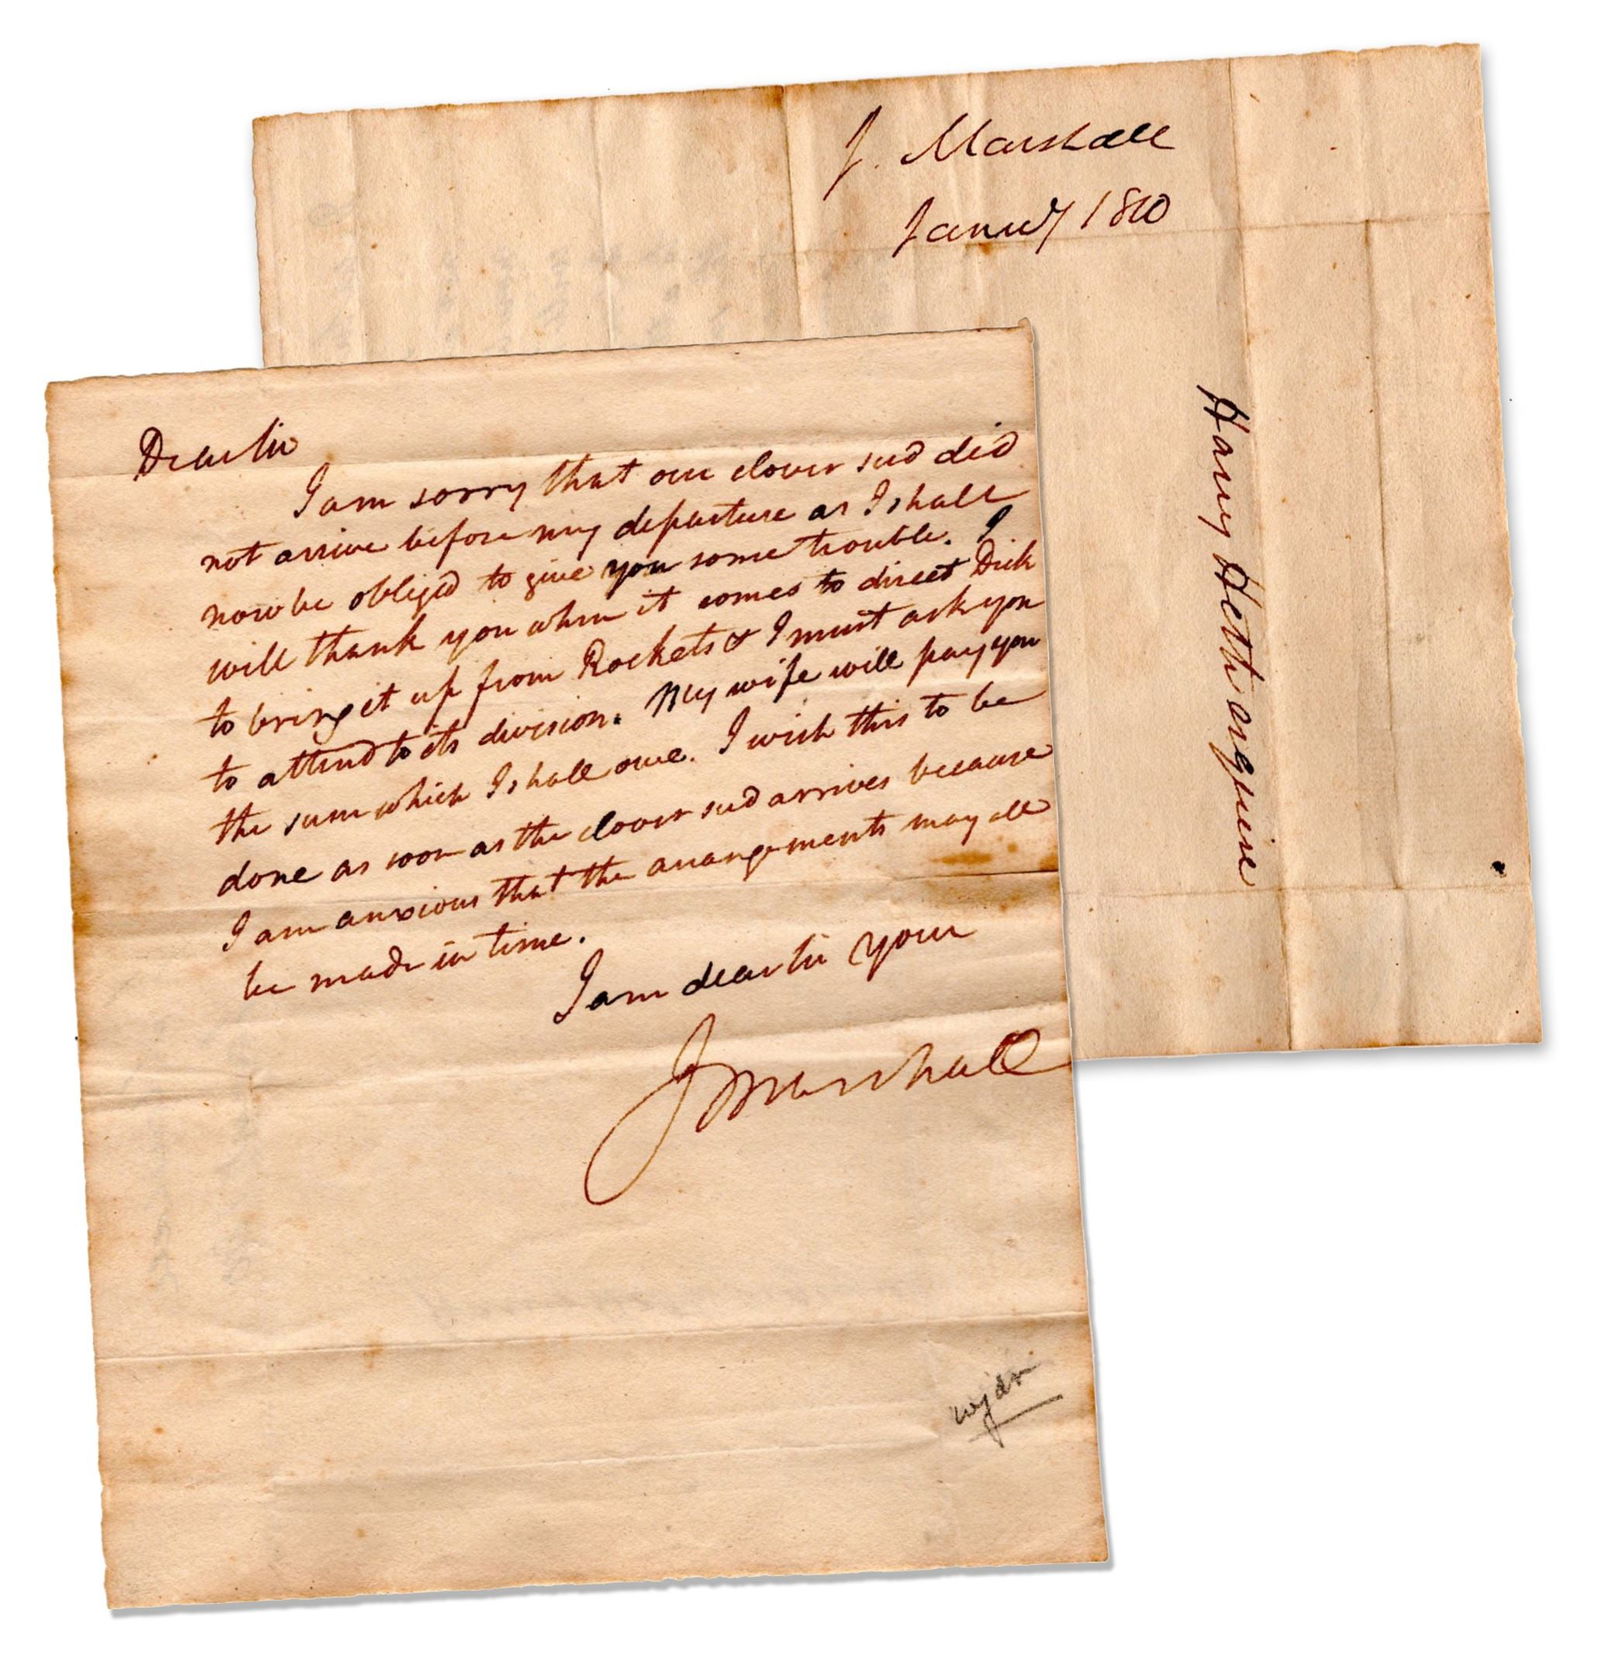 J. Marshall
Jany 1810
Harry Heth esquire
Dear Sir
I am sorry that our clover seed did
not arrive before my departure as I shall
now be obliged to give you some trouble. I
will thank you when it comes to direct Dick
to bring it up from Rockets & I must ask you
to attend to its division. My wife will pay you
the sum which I shall owe. I wish this to be
done as soon as the clover seed arrives because
I am anxious that the arrangements may all
be made in time.
I am dear Sir your
J Marshall